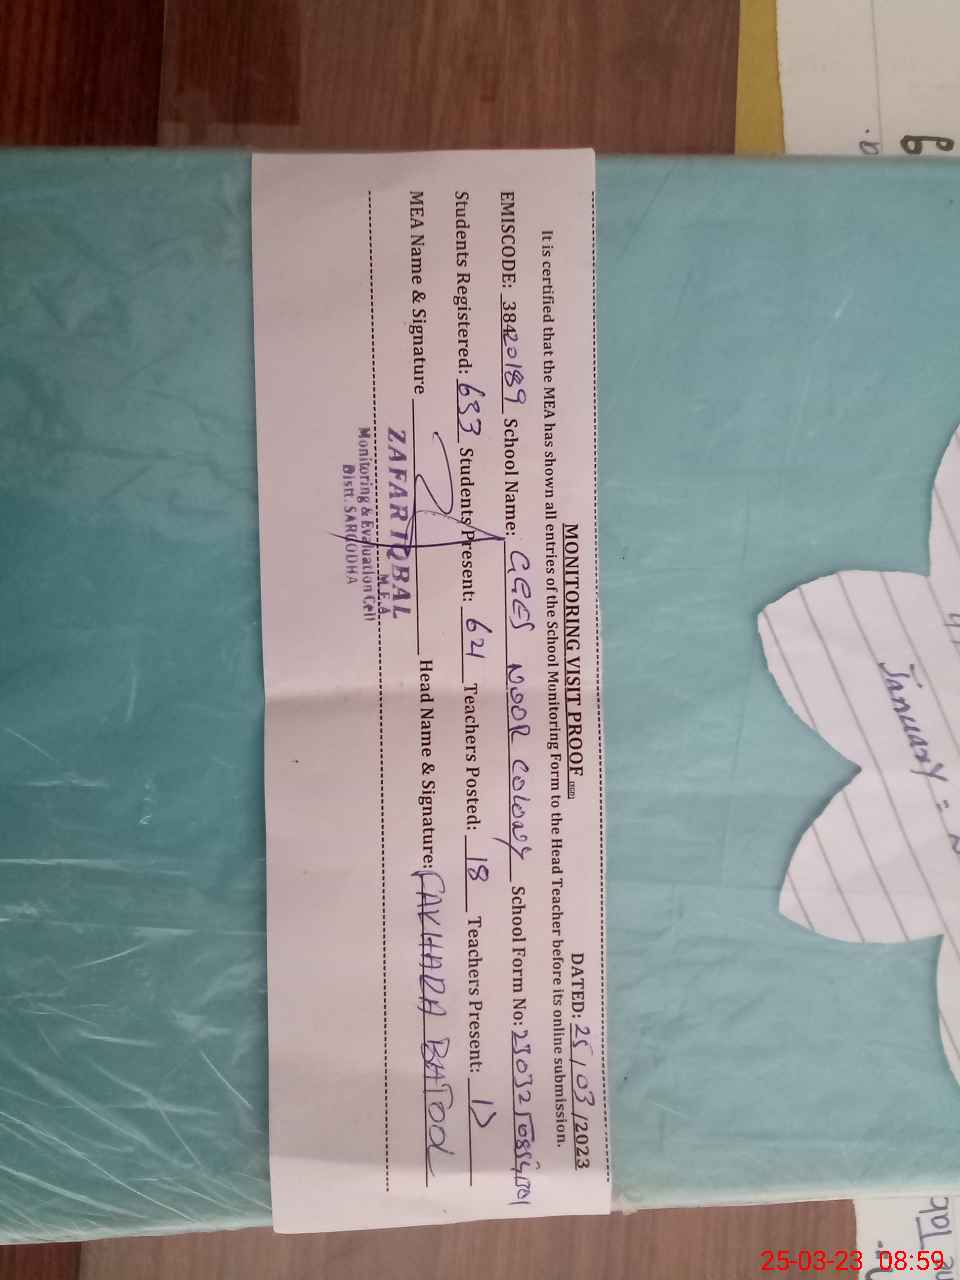 MONITORING VISIT PROOF DATED: 25/03/2023
It is certified that the MEA has shown all entries of the School Monitoring Form to the Head Teacher before its online submission.
EMISCODE: 38420189 School Name: GGES NOOR COLONY School Form No:
Students Registered: 633 Students Present: 621 Teachers Posted: 18 Teachers Present: 17
MEA Name & Signature Head Name & Signature: FAKHARA BATOOL
ZAFAR IQBAL
M.E.A
Monitoring & Evaluation Cell
Distt. SARGODHA
January =
25-03-23 08:59